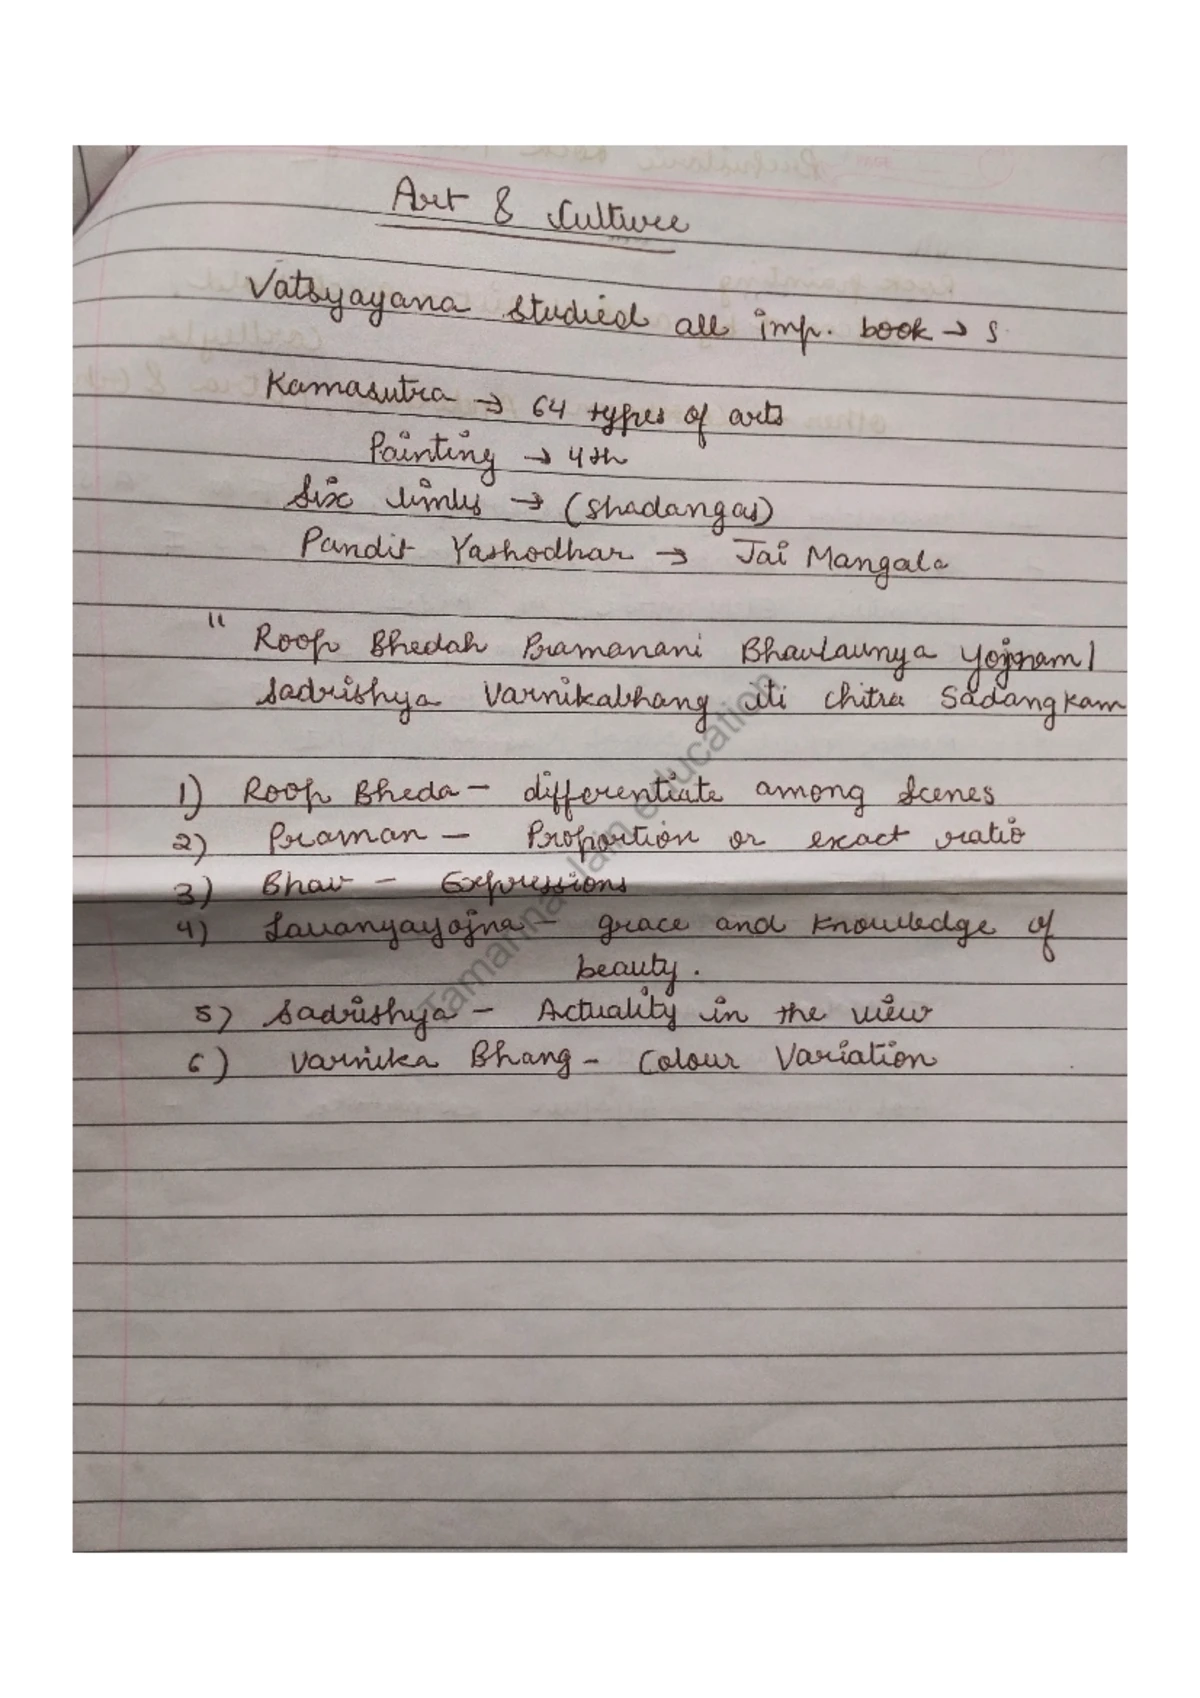 Art & Culture
Vatsyayana studied all imp. book → S
Kamasutra → 64 types of arts
Painting → 4th
Six limbs → (Shadangas)
Pandit Yashodhar → Jai Mangala
" Roop Bhedah Pramanani Bhavlaunya Yojnam |
Sadrishya Varnikabhang iti chitra Sadangkam
1) Roop Bheda - differentiate among scenes
2) Praman - Proportion or exact ratio
3) Bhav - Expressions
4) Lavanyayojna - grace and knowledge of
beauty.
5) Sadrishya - Actuality in the view
6) Varnika Bhang - Colour Variation
Tamanna Jain education